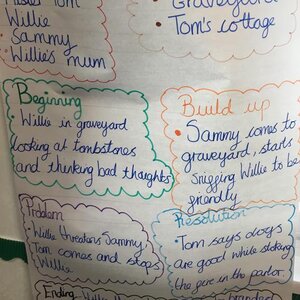 Tom
Willie
Sammy
Willie's mum
Graveyard
Tom's cottage
Beginning
• Willie in graveyard
looking at tombstones
and thinking bad thoughts
Build up
• Sammy comes to
graveyard, starts
Willie to be
friendly
Problem
• Willie threatens Sammy,
Tom comes and stops
Willie.
Resolution
• Tom says dogs
are good while
the in the parlor.
Ending